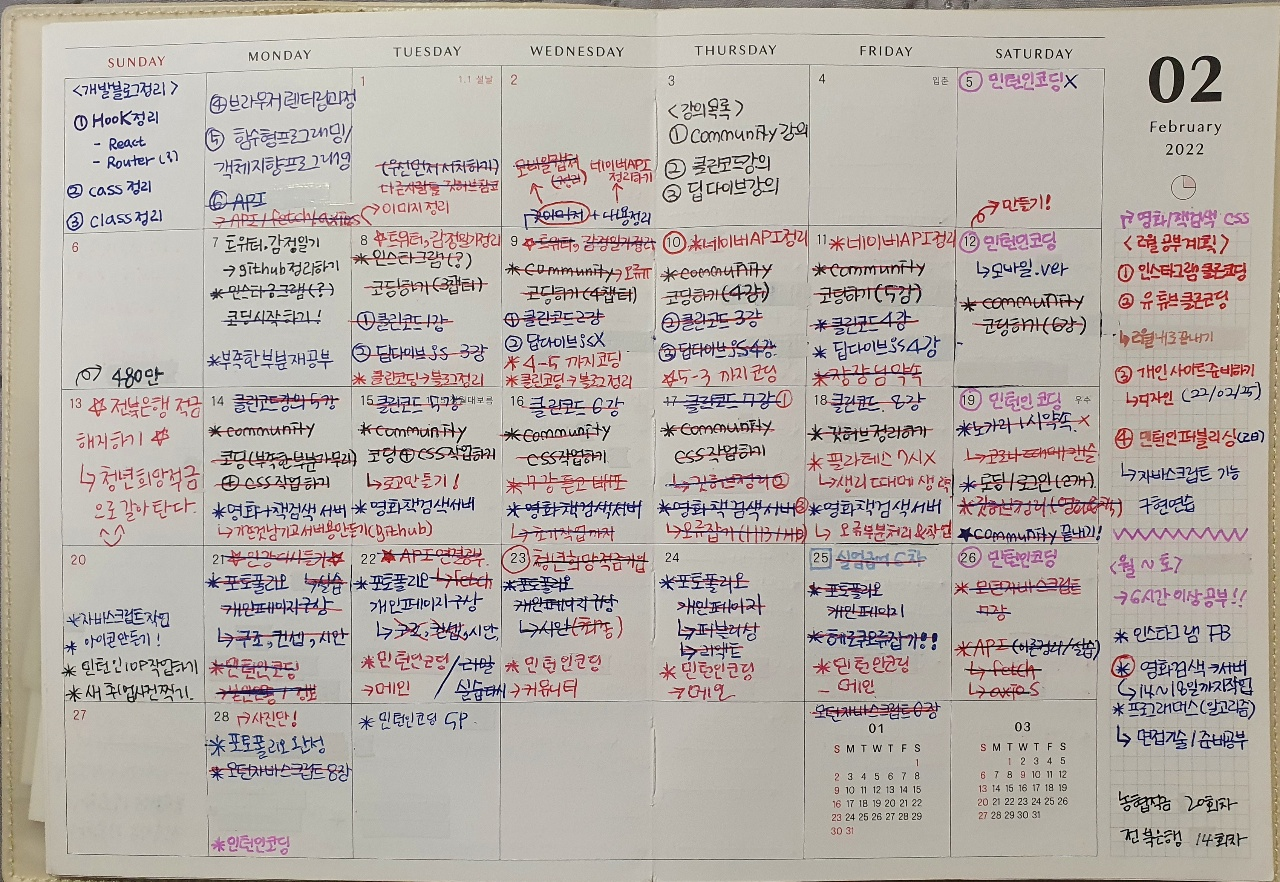 SUNDAY MONDAY TUESDAY WEDNESDAY THURSDAY FRIDAY SATURDAY
02
February
2022
<개발블로그정리>
① Hook정리
- React
- Router (3)
② cass 정리
③ class정리
④ 브라우저 렌더링과정
⑤ 함수형프로그래밍/
객체지향프로그래밍
⑥ API
→ API / fetch / axios
1
1.1 설날
(우선먼저서치하기)
→ 이미지정리
2
네이버API
정리하기
이미지 + 내용정리
3
<강의목록>
① community 강의
② 클린코드강의
③ 딥다이브강의
4
입춘
5 민턴인코딩X
→ 만들기!
6
→ 480만
7 토위터, 감정일기
→ github정리하기
* 인스타그램(?)
코딩시작하기!
*부족한부분재공부
8 ☆토위터, 감정일기정리
* 인스타그램(?)
코딩하기(3챕터)
① 클린코드1강
② 딥다이브JS 3강
* 클린코딩→블로그정리
9 *토위터, 감정일기정리
*community→오류
코딩하기(4챕터)
① 클린코드2강
② 딥다이브JSX
* 4-5 까지코딩
*클린코딩→블로그정리
10 *네이버API정리
*community
코딩하기(4강)
② 클린코드 3강
③ 딥다이브JS4강
☆5-3 까지코딩
11 *네이버API정리
*community
코딩하기(5강)
*클린코드 4강
* 딥다이브JS4강
12 민턴인코딩
↳모바일.ver
*community
코딩하기(6강)
13 ☆전북은행 적금
해지하기 ☆
↳청년희망적금
으로 갈아탄다.
14 클린코드강의 5강
*community
코딩(부족한부분마무리)
④ CSS작업하기
*영화+책검색 서버
↳기존것남기고서버용만들기(github)
15
*community
코딩④CSS작업하기
↳로고만들기!
*영화책검색서버
16 클린코드 6강
*community
CSS작업하기
*영화책검색서버
↳초기작업까지
17 클린코드 7강①
*community
CSS작업하기
↳깃허브정리②
*영화책검색서버③
18 클린코드 8강
*깃허브정리하기
*필라테스 7시X
↳생리대매 생략
*영화책검색서버
↳ 오류부분처리&작업
19 민턴인코딩
우수
*노가리 1시약속 X
*community끝내기!
20
*자바스크립트작업
* 아이콘만들기!
* 민턴인TOP작업하기
* 새 취업사진찍기.
21
*포토폴리오 ↳실습
개인페이지구상
↳구조, 컨셉, 시안
*민턴인코딩
22 * API연결공부
*포토폴리오↳fetch
개인페이지구상
↳구조, 컨셉, 시안
*민턴인코딩
→메인
23 청년희망적금가입
*포토폴리오
개인페이지구상
↳시안(확정)
* 민턴인코딩
→커뮤니티
24
*포토폴리오
개인페이지
↳퍼블리싱
↳리액트
* 민턴인코딩
→메인
25 실업급여 6차
*포토폴리오
개인페이지
*헤로쿠오류잡기!!
* 민턴인코딩
- 메인
모던자바스크립트6강
26 민턴인코딩
* 모던자바스크립트
7강
*API(이론정리/실습)
↳ fetch
↳ axios
27
28 →사진단!
*포토폴리오 완성
*모던자바스크립트 8강
*민턴인코딩
* 민턴인코딩 GP.
01
S M T W T F S
1
2 3 4 5 6 7 8
9 10 11 12 13 14 15
16 17 18 19 20 21 22
23 24 25 26 27 28 29
30 31
03
S M T W T F S
1 2 3 4 5
6 7 8 9 10 11 12
13 14 15 16 17 18 19
20 21 22 23 24 25 26
27 28 29 30 31
영화/책검색 CSS
<2월 공부계획>
① 인스타그램 클론코딩
② 유튜브클론코딩
↳2월내로끝내기
③ 개인 사이트준비하기
↳디자인 (22/02/25)
④ 민턴인퍼블리싱(28)
↳자바스크립트 기능
구현연습
<월 ~ 토>
→6시간이상공부!!
* 인스타그램 FB
* 영화검색→서버
↳14~18일까지작업
* 프로그래머스(알고리즘)
↳ 면접기술/준비공부
농협적금 20회차
전북은행 14회차